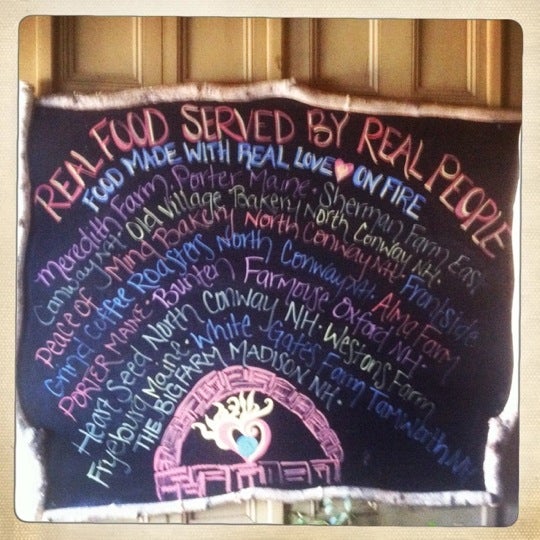 REAL FOOD SERVED BY REAL PEOPLE
FOOD MADE WITH REAL LOVE ON FIRE
Meredith Farm, Porter Maine · Sherman Farm East
Conway NH · Old Village Bakery North Conway NH ·
Peace of Mind Bakery North Conway NH · Frontside
Grind Coffee Roasters North Conway NH · Alma Farm
PORTER MAINE · Bunten Farmouse Oxford NH ·
Heart Seed North Conway NH · Westons Farm
Fryeburg Maine · White Gates Farm Tamworth NH
THE BIG FARM MADISON NH ·